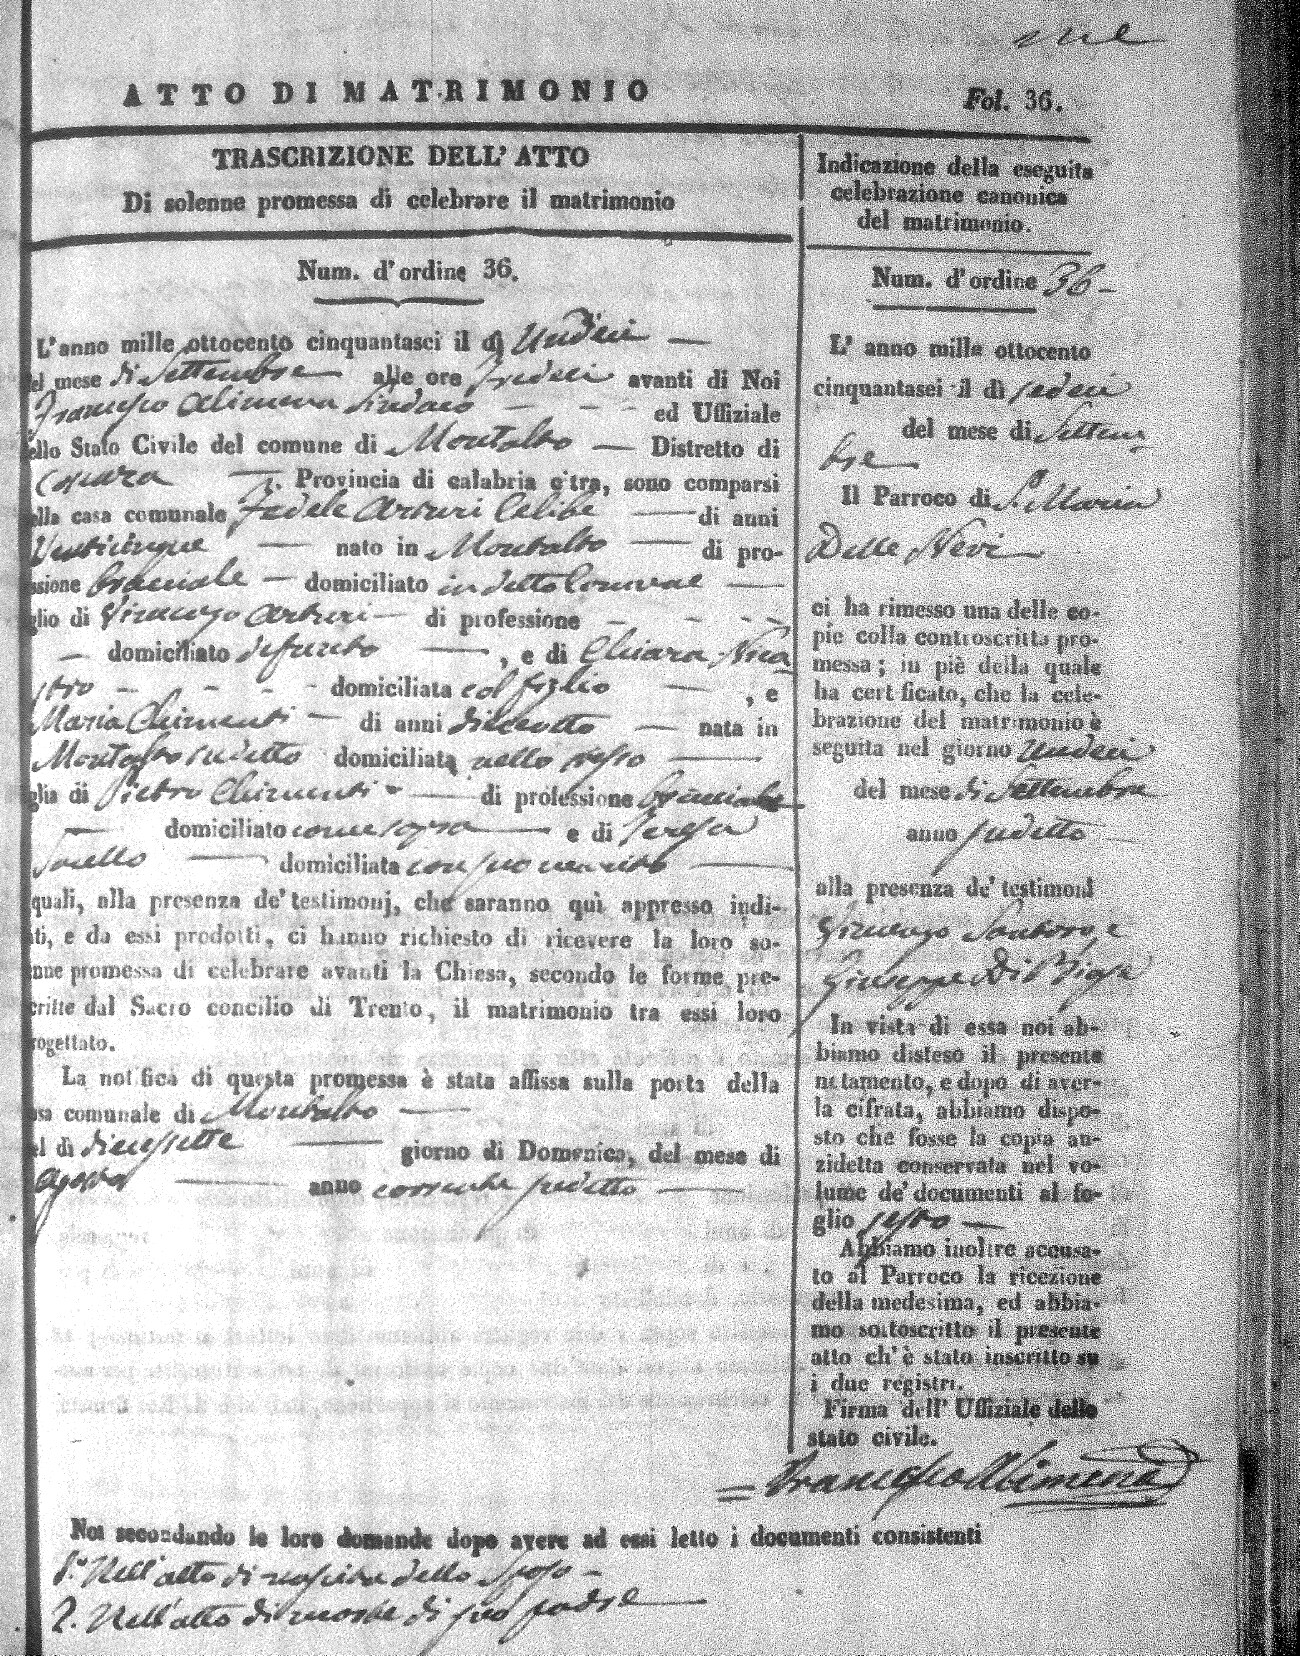 ATTO DI MATRIMONIO
Fol. 36.
TRASCRIZIONE DELL' ATTO
Di solenne promessa di celebrare il matrimonio
Num. d'ordine 36.
L'anno mille ottocento cinquantasei il dì Undeci
el mese di Settembre alle ore Tredeci avanti di Noi
Francesco Alimena Sindaco ed Uffiziale
ello Stato Civile del comune di Montalto Distretto di
Cosenza Provincia di calabria citra, sono comparsi
ella casa comunale Fedele Arturi Celibe di anni
Venticinque nato in Montalto di pro-
ssione bracciale domiciliato in detto Comune
glio di Vincenzo Arturi di professione
domiciliato defunto, e di Chiara Nica
stro domiciliata col figlio, e
Maria Chimenti di anni dieciotto nata in
Montalto sudetto domiciliata nello stesso
glia di Pietro Chimenti di professione bracciale
domiciliato come sopra e di Teresa
domiciliata con suo marito
quali, alla presenza de' testimonj, che saranno quì appresso indi-
ti, e da essi prodotti, ci hanno richiesto di ricevere la loro so-
nne promessa di celebrare avanti la Chiesa, secondo le forme pre-
critte dal Sacro concilio di Trento, il matrimonio tra essi loro
rogettato.
La notifica di questa promessa è stata affissa sulla porta della
asa comunale di Montalto
el dì diecissette giorno di Domenica, del mese di
Agosto anno corrente sudetto
Indicazione della eseguita
celebrazione canonica
del matrimonio.
Num. d'ordine 36
L' anno mille ottocento
cinquantasei il dì sedeci
del mese di Settem
bre
Il Parroco di S. Maria
Delle Nevi
ci ha rimesso una delle co-
pie colla controscritta pro-
messa; in piè della quale
ha certificato, che la cele-
brazione del matrimonio è
seguita nel giorno Undeci
del mese di Settembre
anno sudetto
alla presenza de' testimoni
Vincenzo e
Giuseppe Di Biase
In vista di essa noi ab-
biamo disteso il presente
notamento, e dopo di aver-
la cifrata, abbiamo dispo-
sto che fosse la copia an-
zidetta conservata nel vo-
lume de' documenti al fo-
glio sesto
Abbiamo inoltre accusa-
to al Parroco la ricezione
della medesima, ed abbia-
mo sottoscritto il presente
atto ch' è stato inscritto su
i due registri.
Firma dell' Uffiziale dello
stato civile.
Francesco Alimena
Noi secondando le loro domande dopo avere ad essi letto i documenti consistenti
1.° Nell'atto di nascita dello Sposo
2. Nell'atto di morte di suo padre